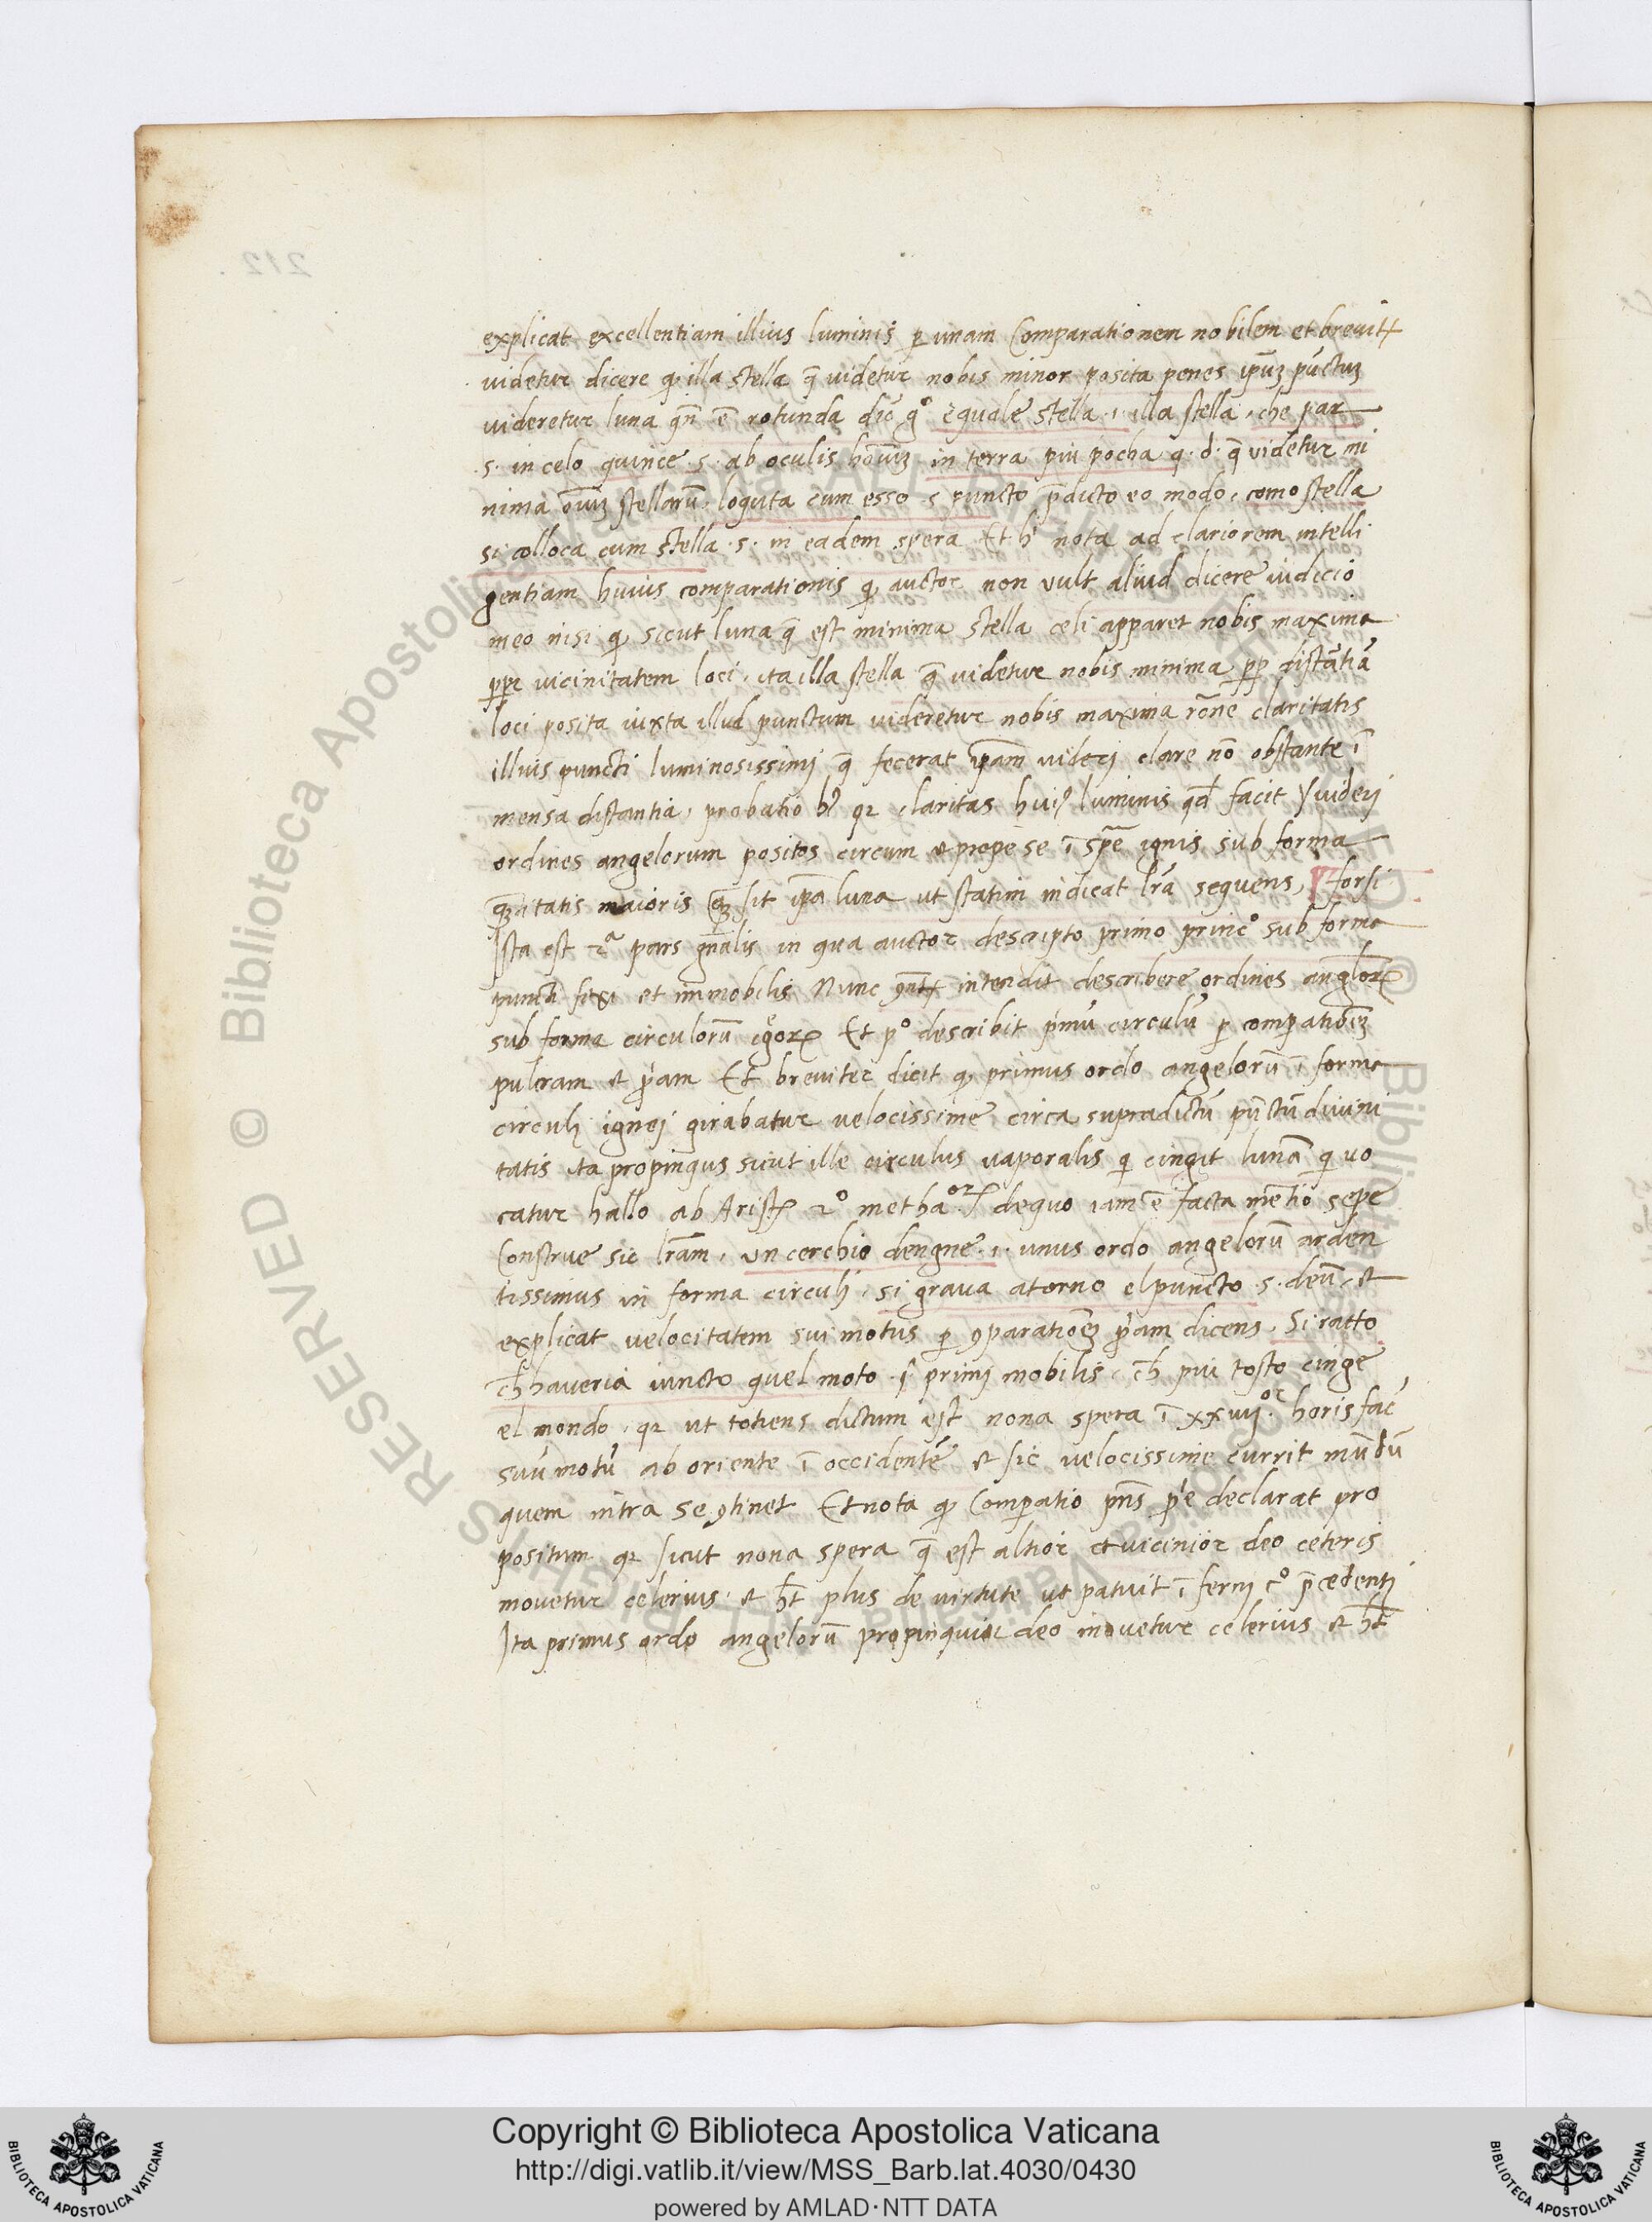 212.
explicat excellentiam illius luminis p̱ unam Comparationem nobilem et breuitꝭ
videtur dicere ꝙ illa stella q̄ videtur nobis minor posita penes ip̄uȝ pūctuȝ
videretur luna qn̄ ē rotunda dic̄ gͦ equale stella .i. illa stella, che par
.s. in celo quince .s. ab oculis hoīuȝ in terra piu pocha q. d. q̄ videtur mi
nima oīuȝ stellarū, loguta cum esso .s. puncto p̄dicto eo modo, como stella
si colloca cum stella .s. in eadem spera Et hͥ nota ad clariorem intelli
gentiam huius comparationis ꝙ auctor non vult aliud dicere iudicio
meo nisi ꝙ sicut luna q̄ est minima stella celi apparet nobis maxima
ꝓpr̄ vicinitatem loci, ita illa stella q̄ videtur nobis minima ꝓp̄ distātiā
loci posita iuxta illud punctum videretur nobis maxima rōne claritatis
illius puncti luminosissimi q̄ fecerat ip̄am videri clare nō obstante ī
mensa distantia, probatio hͥ qꝛ claritas huiꝰ luminis qd̄ facit videri
ordines angelorum positos circum et prope se ī spē ignis sub forma
q̄ntitatis maioris q̄ȝ sit ip̄a luna ut statim indicat lr̄a sequens, forsi
Ista est 2ª pars gn̄alis in qua auctor descripto primo princͦ sub forma
puncti fixi et immobilis Nunc ꝯn̄tꝭ intendit describere ordines angloꝝ
sub forma circulorū igneoꝝ Et pͦ describit pͥmū circulū p̱ comp̱atiōeȝ
pulcram et ꝓpͥam Et breviter dicit ꝙ primus ordo angelorū ī forma
circuli ignei girabatur velocissime circa supradictū pūctū diuini
tatis ita propinqus sicut ille circulus vaporalis qͥ cingit lunā qͥ uo
catur hallo ab Arist̄ 2ͦ metha.oꝝ de quo iam ē facta mentio sepe
Construe sic lr̄am, un cerchio dengne .i. unus ordo angelorū arden
tissimus in forma circuli, si girava atorno el puncto .s. deū, et
explicat velocitatem sui motus p̱ ꝯparatiōeȝ ꝓpͥam dicens, Si ratto
ch̄ haueria iuncto quel moto .s. primi mobilis, ch̄ piu tosto cinge
el mondo, qꝛ ut totiens dictum est nona spera ī xxiiij.or horis fac̄
suū motū ab oriente ī occidentē et sic velocissime currit mūdū
quem intra se ꝯtinet Et nota ꝙ Comp̱atio pn̄s ꝓpͥe declarat pro
positum qꝛ sicut nona spera q̄ est altior et vicinior deo ceteris
movetur celerius, et hēt plus de virtute ut patuit ī ferri cͦ p̄cedenti
Ita primus ordo angelorū propinquior deo movetur celerius et hēt
Copyright © Biblioteca Apostolica Vaticana
http://digi.vatlib.it/view/MSS_Barb.lat.4030/0430
powered by AMLAD·NTT DATA